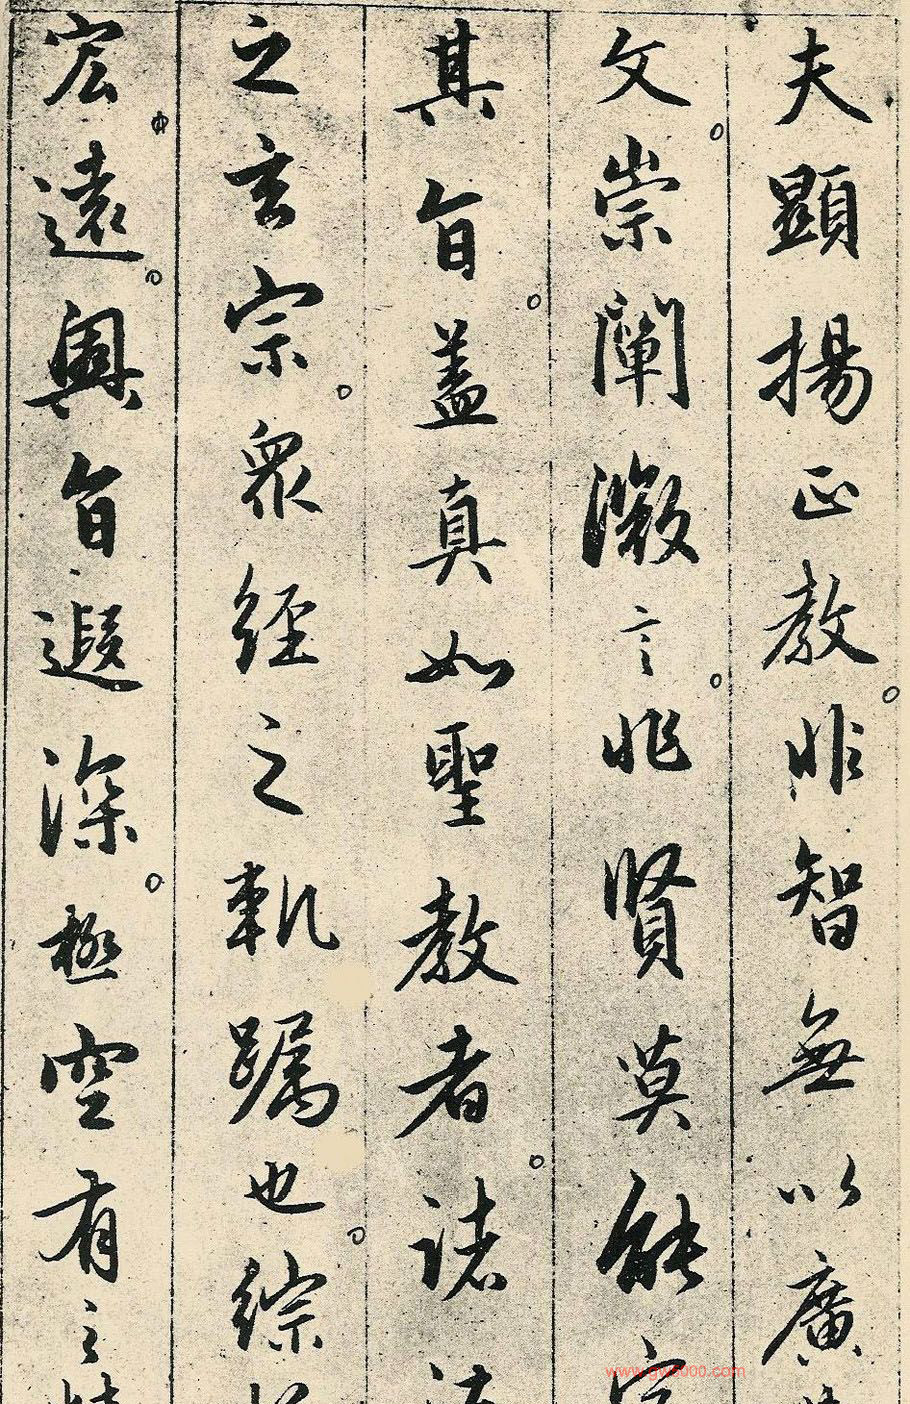 夫顯揚正教非智無以廣
文崇闡微言非賢莫能
其旨蓋真如聖教者諸
之玄宗眾經之軌躅也綜
宏遠奧旨遐深極空有之
www.gw5000.com